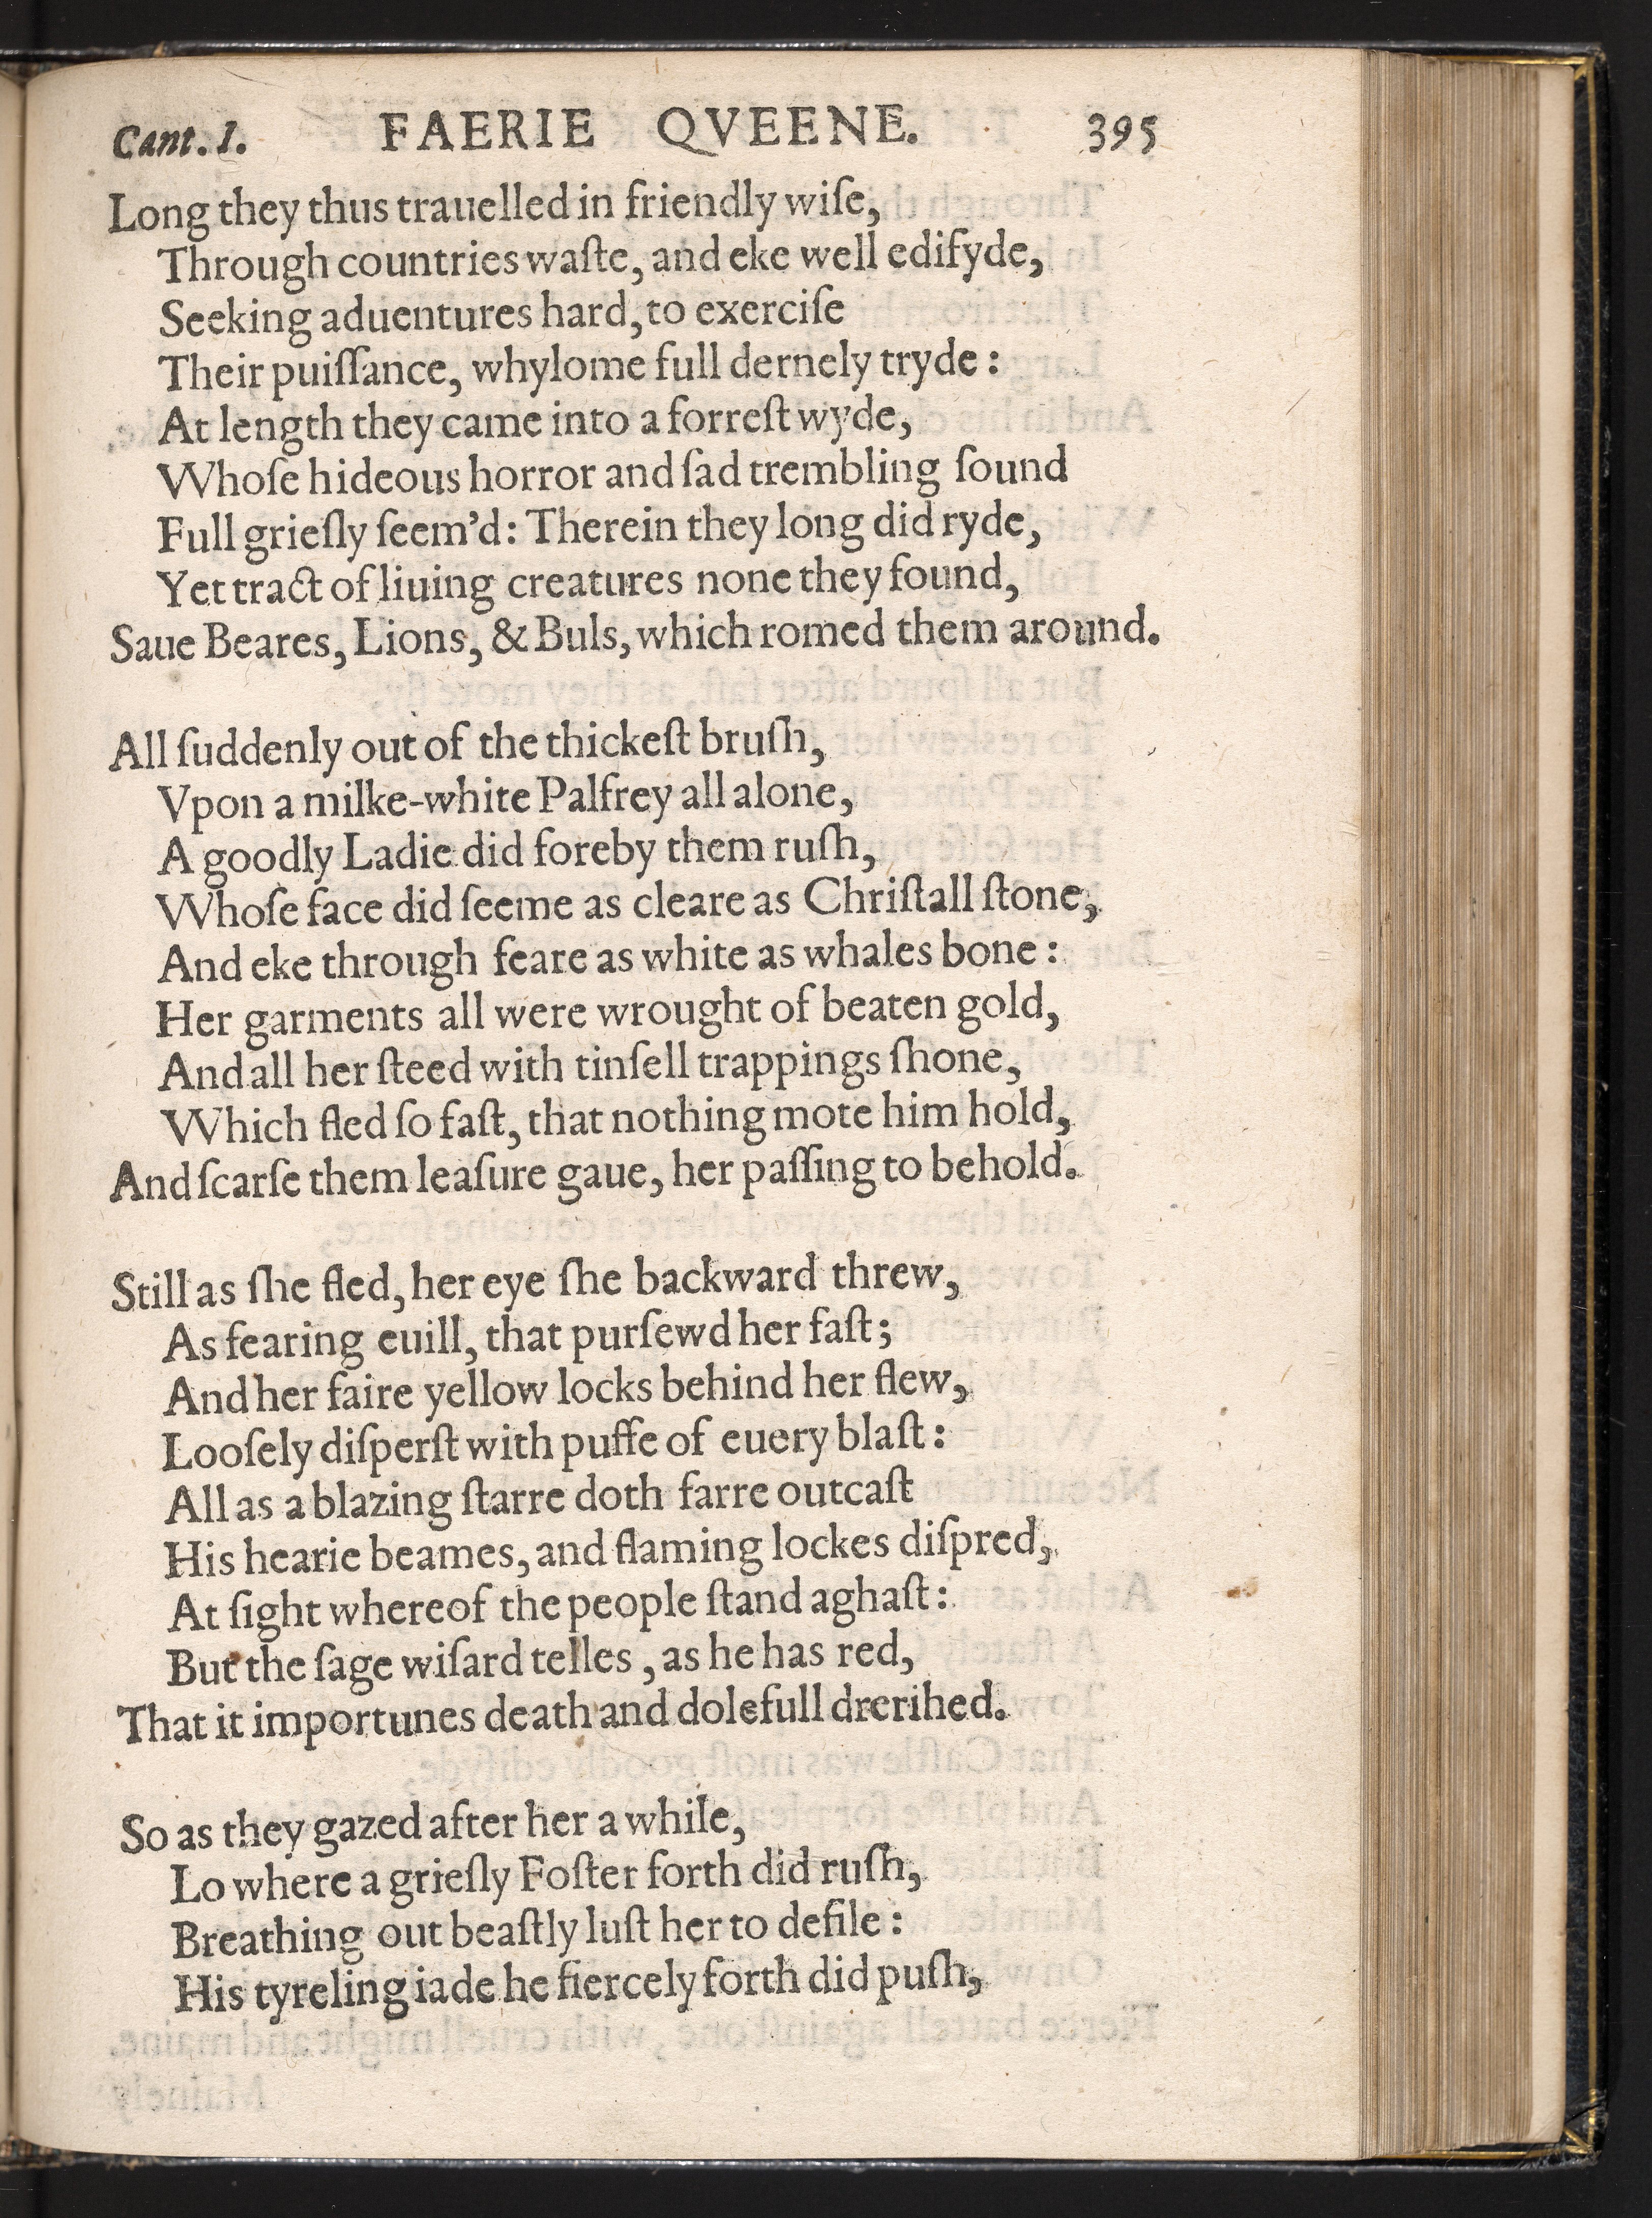 Cant. I. FAERIE QVEENE. 395
Long they thus trauelled in friendly wiſe,
Through countries waſte, and eke well edifyde,
Seeking aduentures hard, to exerciſe
Their puiſſance, whylome full dernely tryde:
At length they came into a forreſt wyde,
Whoſe hideous horror and ſad trembling ſound
Full grieſly ſeem'd: Therein they long did ryde,
Yet tract of liuing creatures none they found,
Saue Beares, Lions, & Buls, which romed them around.
All ſuddenly out of the thickeſt bruſh,
Vpon a milke-white Palfrey all alone,
A goodly Ladie did foreby them ruſh,
Whoſe face did ſeeme as cleare as Chriſtall ſtone,
And eke through feare as white as whales bone:
Her garments all were wrought of beaten gold,
And all her ſteed with tinſell trappings ſhone,
Which fled ſo faſt, that nothing mote him hold,
And ſcarſe them leaſure gaue, her paſſing to behold.
Still as ſhe fled, her eye ſhe backward threw,
As fearing euill, that purſewd her faſt;
And her faire yellow locks behind her flew,
Looſely diſperſt with puffe of euery blaſt:
All as a blazing ſtarre doth farre outcaſt
His hearie beames, and flaming lockes diſpred,
At ſight whereof the people ſtand aghaſt:
But the ſage wiſard telles, as he has red,
That it importunes death and dolefull drerihed.
So as they gazed after her a while,
Lo where a grieſly Foſter forth did ruſh,
Breathing out beaſtly luſt her to defile:
His tyreling iade he fiercely forth did puſh,